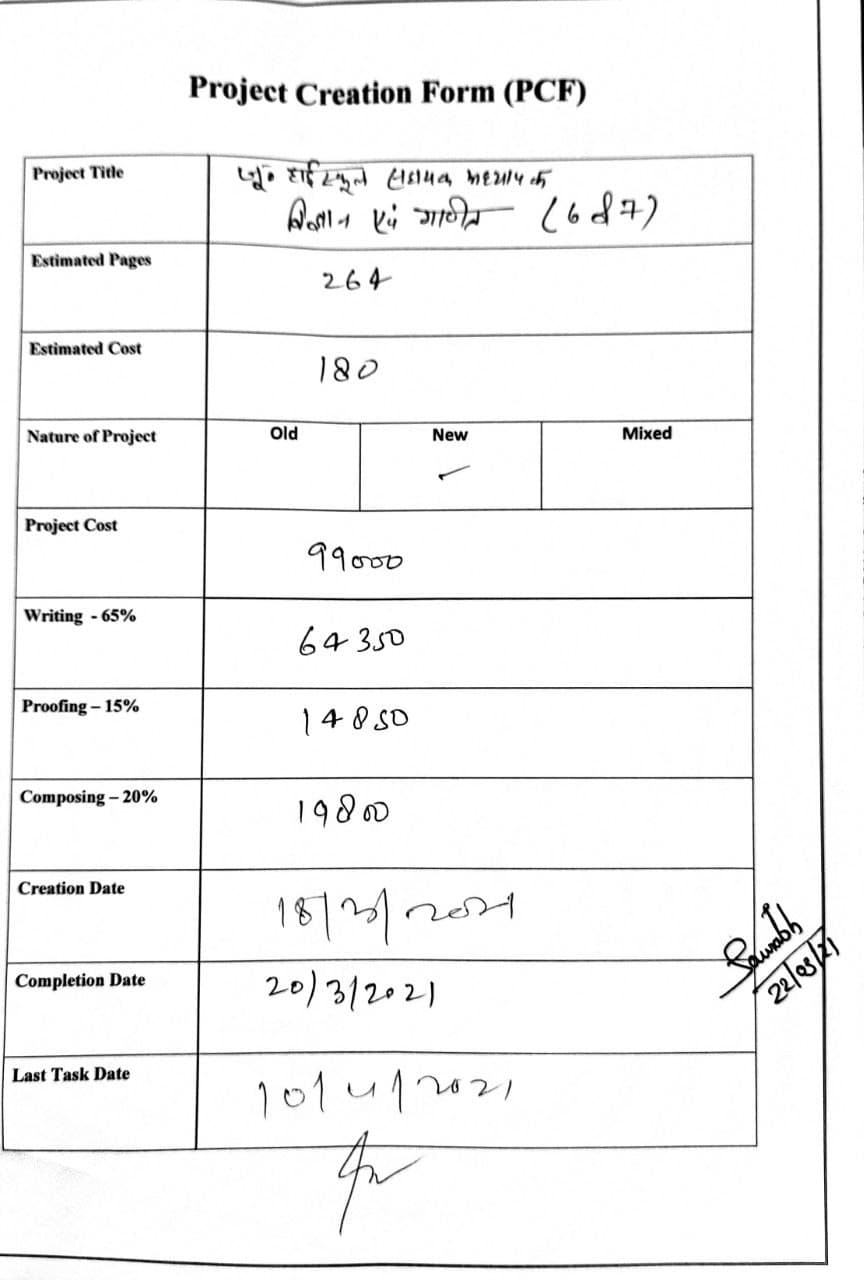 Project Creation Form (PCF)
Project Title
जू० हाई स्कूल सहायक अध्यापक
विज्ञान एवं गणित (6 से 7)
Estimated Pages
264
Estimated Cost
180
Nature of Project Old New Mixed
✓
Project Cost
99000
Writing - 65%
64350
Proofing – 15%
14850
Composing – 20%
19800
Creation Date
18/3/2021
Completion Date
20/3/2021
Last Task Date
10/4/2021
Saurabh
22/03/21